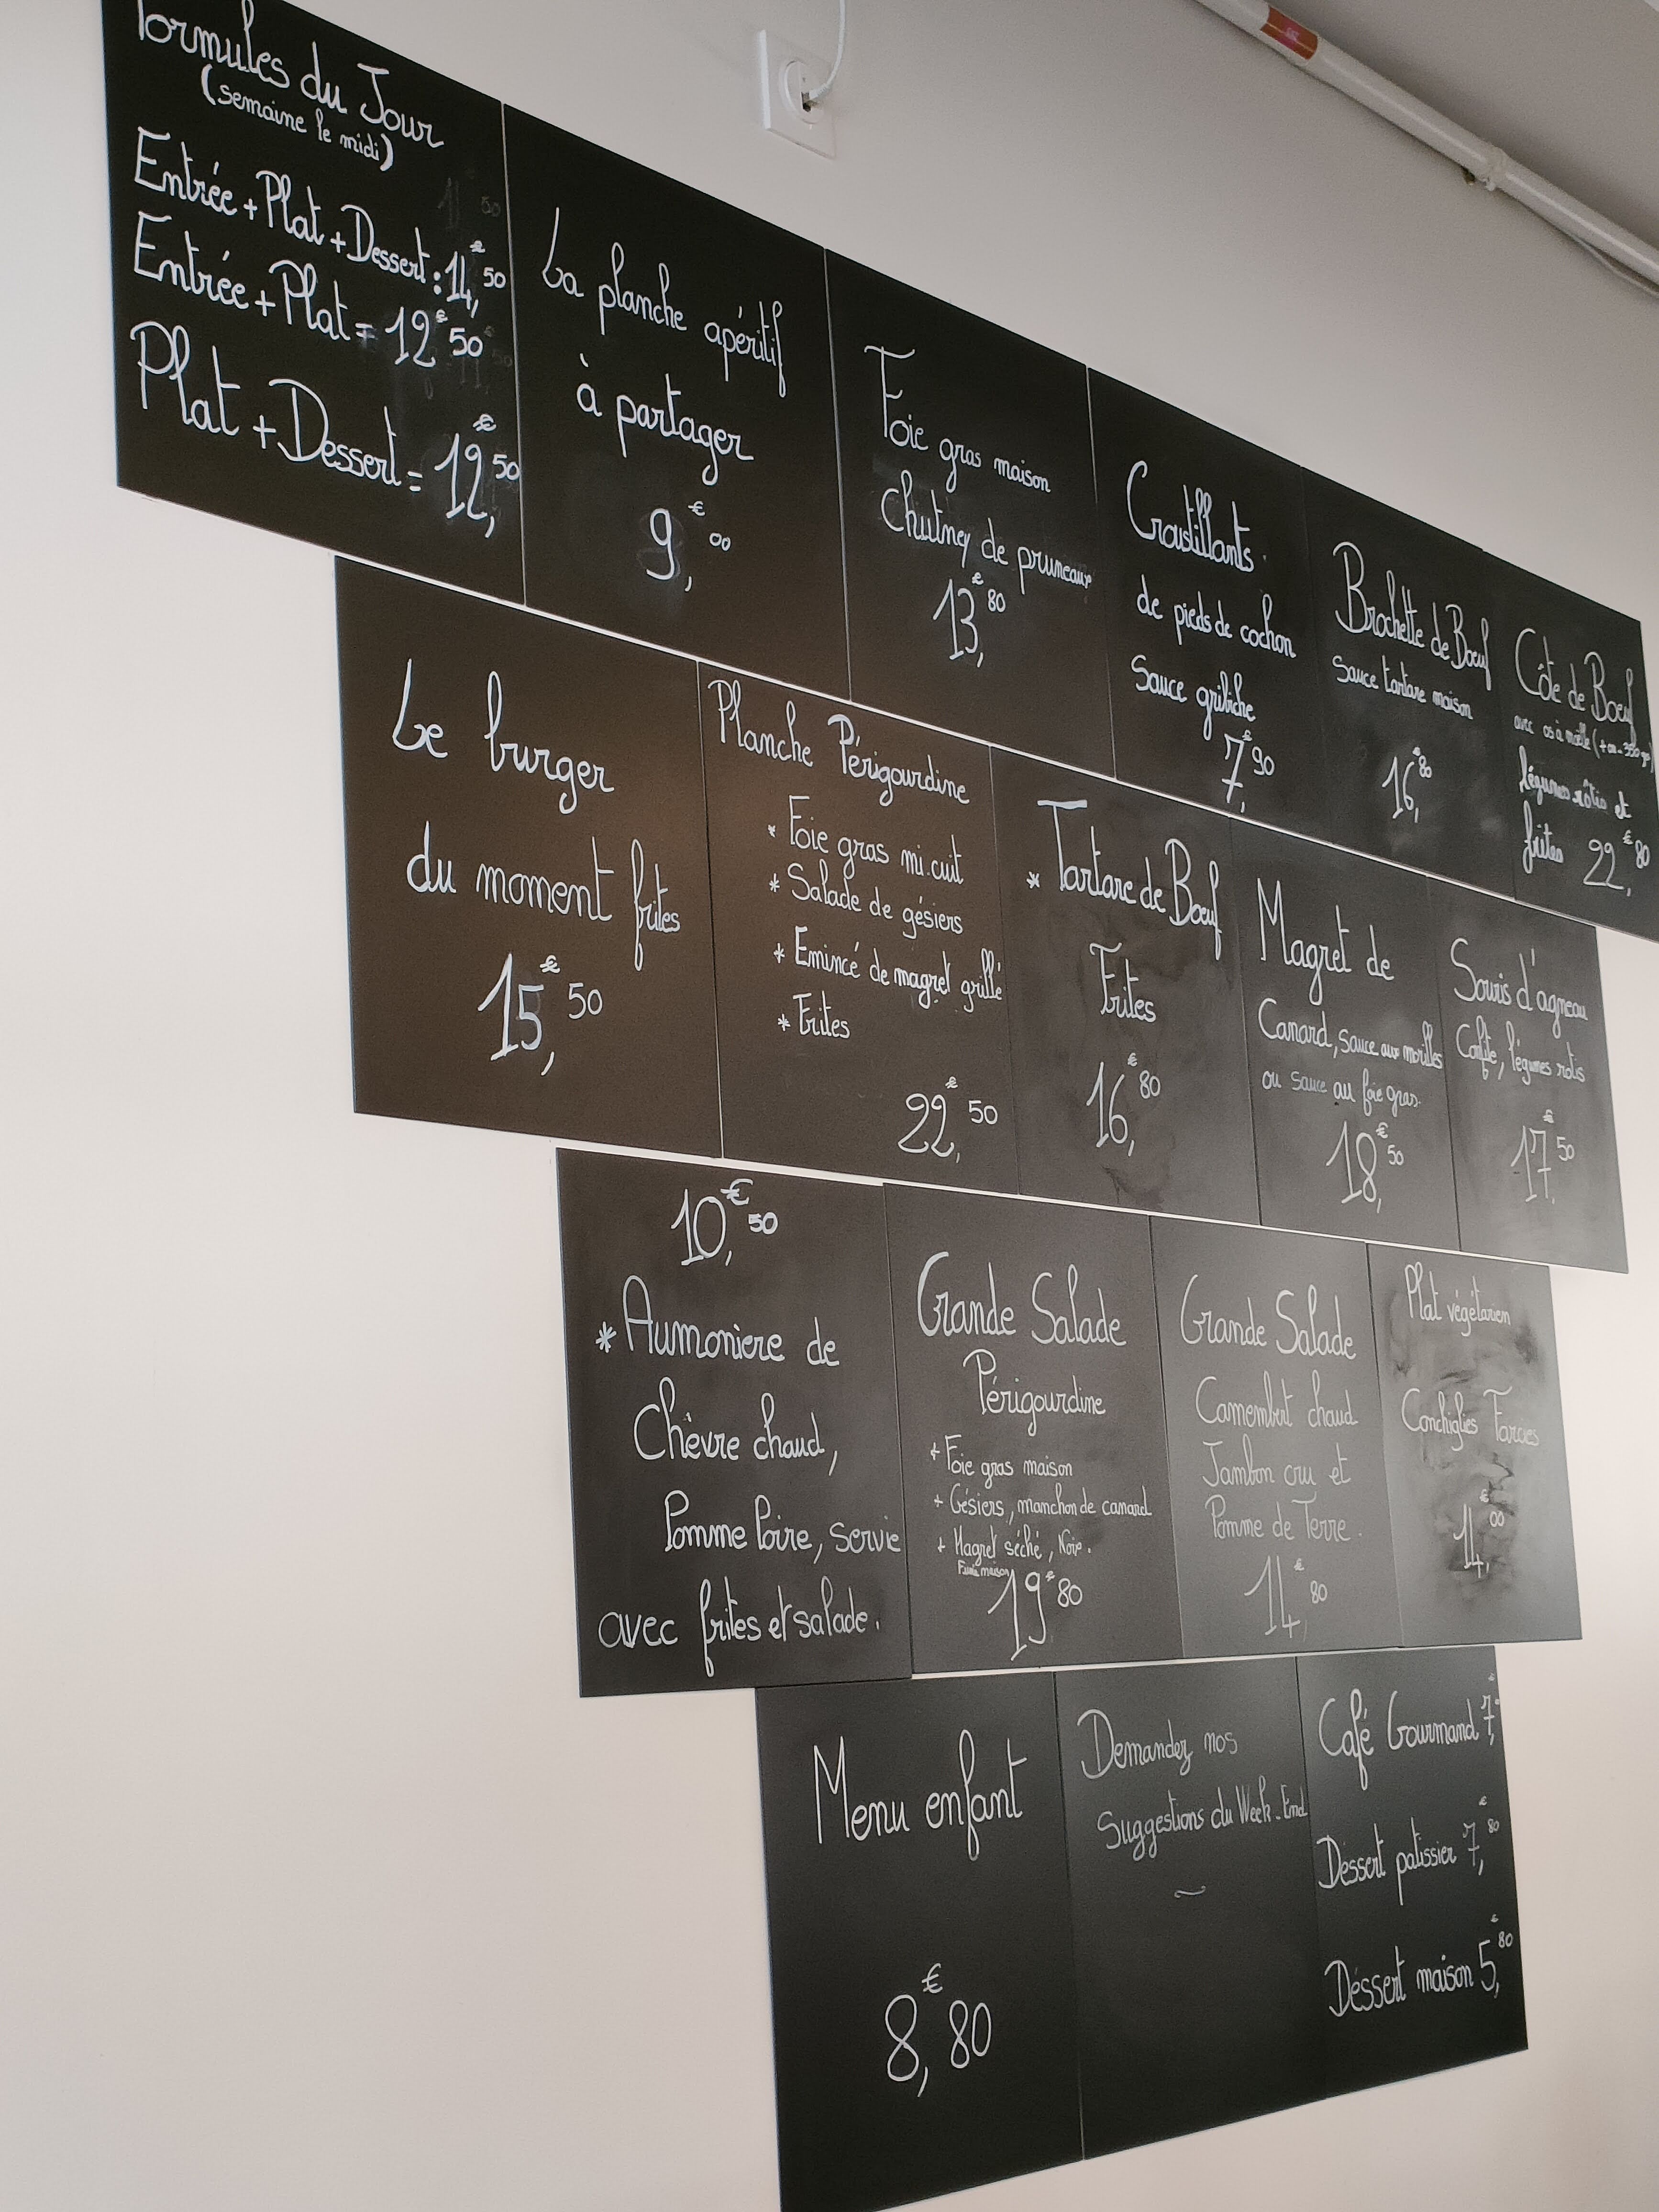 Formules du Jour
(semaine le midi)
Entrée + Plat + Dessert : 14,€50
Entrée + Plat = 12€50
Plat + Dessert = 12,€50
La planche apéritif
à partager
9,€00
Foie gras maison
Chutney de pruneaux
13,€80
Croustillants
de pieds de cochon
Sauce gribiche
7,€90
Brochette de Boeuf
Sauce tartare maison
16,€80
Côte de Boeuf
avec os à moëlle (+ ou - 350 gr)
légumes rôtis et
frites 22,€80
Le burger
du moment frites
15,€50
Planche Périgourdine
* Foie gras mi-cuit
* Salade de gésiers
* Emincé de magret grillé
* Frites
22,€50
* Tartare de Boeuf
Frites
16,€80
Magret de
Canard, sauce aux morilles
ou sauce au foie gras.
18,€50
Souris d'agneau
Confite, légumes rotis
17,€50
10,€50
* Aumoniere de
Chèvre chaud,
Pomme Poire, servie
avec frites et salade.
Grande Salade
Périgourdine
+ Foie gras maison
+ Gésiers, manchon de canard
+ Magret séché, Noix.
maison
19,€80
Grande Salade
Camembert chaud
Jambon cru et
Pomme de Terre.
14,€80
Plat végétarien
Conchiglies Farcies
14,€00
Menu enfant
8,€80
Demandez nos
Suggestions du Week-End
Café Gourmand 7,€
Déssert patissier 7,€80
Déssert maison 5,€80